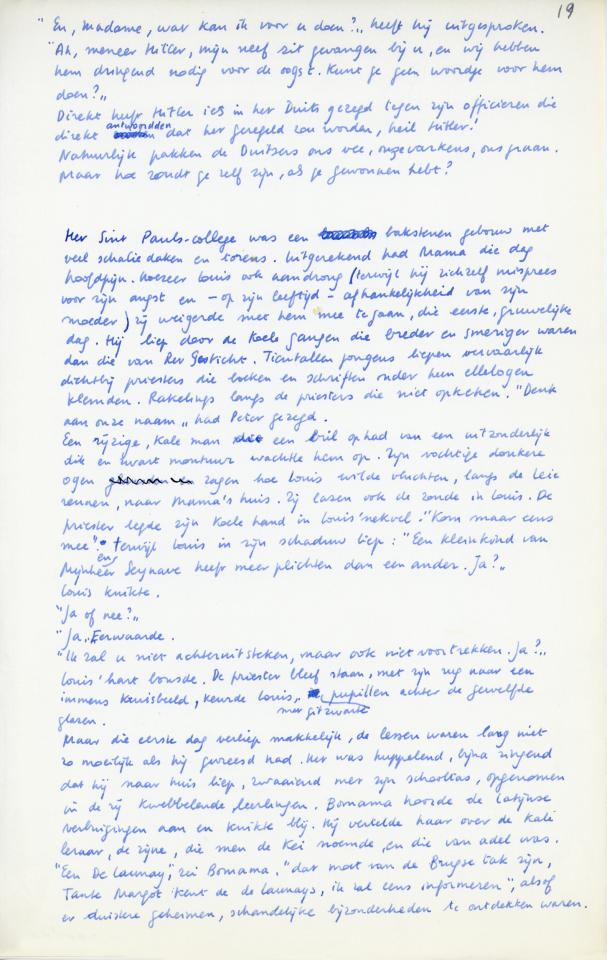 19
"En, Madame, wat kan ik voor u doen?" heeft hij uitgesproken.
"Ah, meneer Hitler, mijn neef zit gevangen bij u, en wij hebben
hem dringend nodig voor de oogst. Kunt ge geen woordje voor hem
doen?"
Direkt heeft Hitler iets in het Duits gezegd tegen zijn officieren die
direkt antwoordden dat het geregeld zou worden, heil Hitler!
Natuurlijk pakken de Duitsers ons vee, onze varkens, ons graan.
Maar hoe zoudt ge zelf zijn, als je gewonnen hebt?
Het Sint Pauls-college was een bakstenen gebouw met
veel schaliedaken en torens. Uitgerekend had Mama die dag
hoofdpijn. Hoezeer Louis ook aandrong (terwijl hij zichzelf misprees
voor zijn angst en – op zijn leeftijd – afhankelijkheid van zijn
moeder) zij weigerde met hem mee te gaan, die eerste, gruwelijke
dag. Hij liep door de koele gangen die breder en smeriger waren
dan die van Het Gesticht. Tientallen jongens liepen vervaarlijk
dichtbij priesters die boeken en schriften onder hun ellebogen
klemden. Rakelings langs de priesters die niet opkeken. "Denk
aan onze naam" had Peter gezegd.
Een rijzige, kale man die een bril ophad van een uitzonderlijk
dik en zwart montuur wachtte hem op. Zijn vochtige donkere
ogen zagen hoe Louis wilde vluchten, langs de Leie
rennen, naar Mama's huis. Zij lazen ook de zonde in Louis. De
priester legde zijn koele hand in Louis' nekvel: "Kom maar eens
mee". En terwijl Louis in zijn schaduw liep: "Een kleinkind van
Mijnheer Seynave heeft meer plichten dan een ander. Ja?"
Louis knikte.
"Ja of nee?"
"Ja, Eerwaarde.
"Ik zal u niet achteruitsteken, maar ook niet voortrekken. Ja?"
Louis' hart bonsde. De priester bleef staan, met zijn rug naar een
immens kruisbeeld, keurde Louis, met gitzwarte pupillen achter de gewelfde
glazen.
Maar die eerste dag verliep makkelijk, de lessen waren lang niet
zo moeilijk als hij gevreesd had. Het was huppelend, bijna zingend
dat hij naar huis liep, zwaaiend met zijn schooltas, opgenomen
in de rij kwebbelende leerlingen. Bomama hoorde de Latijnse
verbuigingen aan en knikte blij. Hij vertelde haar over de kale
leraar, de zijne, die men de Kei noemde, en die van adel was.
"Een De Launay," zei Bomama. "dat moet van de Brugse tak zijn,
Tante Margot kent de de Launays, ik zal eens informeren", alsof
er duistere geheimen, schandelijke bijzonderheden te ontdekken waren.